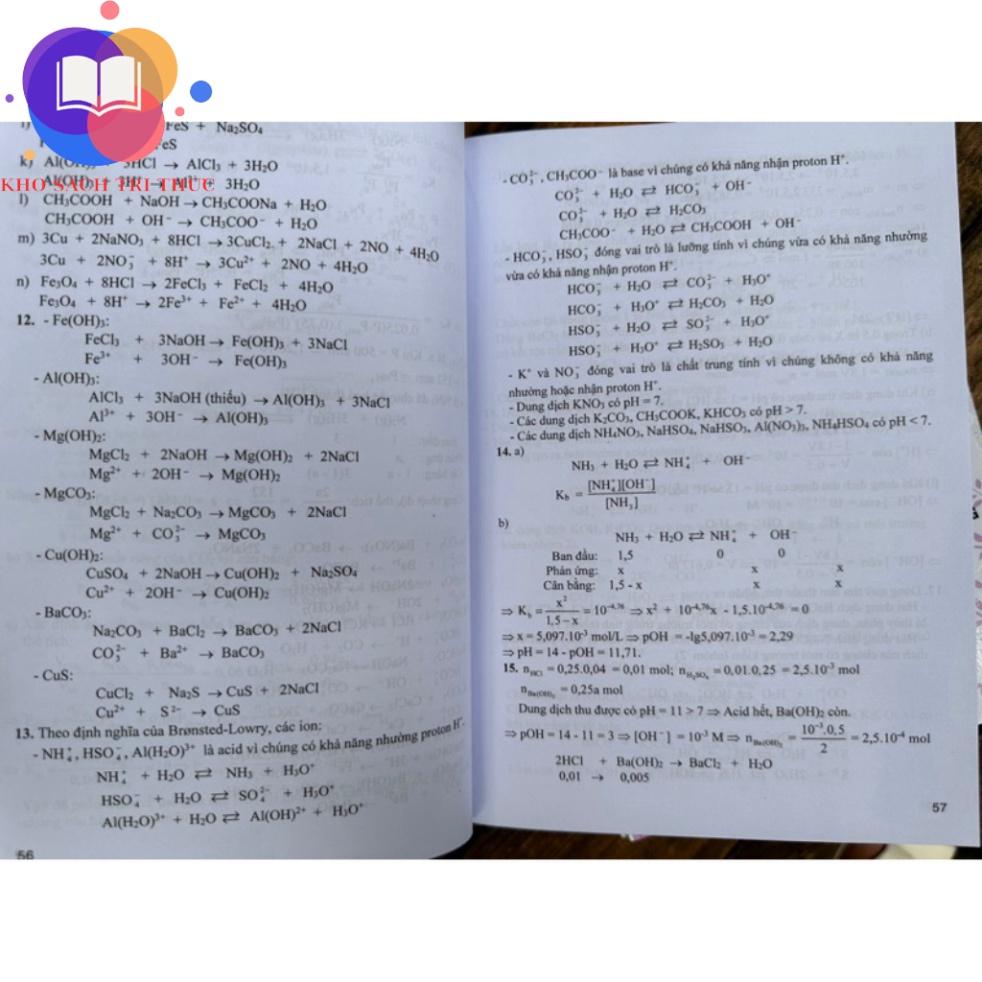 FeS + Na₂SO₄
FeS
k) Al(OH)₃ + 3HCl → AlCl₃ + 3H₂O
KHO SÁCH TRI THỨC
Al(OH)₃ + 3H⁺ → Al³⁺ + 3H₂O
l) CH₃COOH + NaOH → CH₃COONa + H₂O
CH₃COOH + OH⁻ → CH₃COO⁻ + H₂O
m) 3Cu + 2NaNO₃ + 8HCl → 3CuCl₂ + 2NaCl + 2NO + 4H₂O
3Cu + 2NO₃⁻ + 8H⁺ → 3Cu²⁺ + 2NO + 4H₂O
n) Fe₃O₄ + 8HCl → 2FeCl₃ + FeCl₂ + 4H₂O
Fe₃O₄ + 8H⁺ → 2Fe³⁺ + Fe²⁺ + 4H₂O
12. - Fe(OH)₃:
FeCl₃ + 3NaOH → Fe(OH)₃ + 3NaCl
Fe³⁺ + 3OH⁻ → Fe(OH)₃
- Al(OH)₃:
AlCl₃ + 3NaOH (thiếu) → Al(OH)₃ + 3NaCl
Al³⁺ + 3OH⁻ → Al(OH)₃
- Mg(OH)₂:
MgCl₂ + 2NaOH → Mg(OH)₂ + 2NaCl
Mg²⁺ + 2OH⁻ → Mg(OH)₂
- MgCO₃:
MgCl₂ + Na₂CO₃ → MgCO₃ + 2NaCl
Mg²⁺ + CO₃²⁻ → MgCO₃
- Cu(OH)₂:
CuSO₄ + 2NaOH → Cu(OH)₂ + Na₂SO₄
Cu²⁺ + 2OH⁻ → Cu(OH)₂
- BaCO₃:
Na₂CO₃ + BaCl₂ → BaCO₃ + 2NaCl
CO₃²⁻ + Ba²⁺ → BaCO₃
- CuS:
CuCl₂ + Na₂S → CuS + 2NaCl
Cu²⁺ + S²⁻ → CuS
13. Theo định nghĩa của Brønsted-Lowry, các ion:
- NH₄⁺, HSO₄⁻, Al(H₂O)³⁺ là acid vì chúng có khả năng nhường proton H⁺.
NH₄⁺ + H₂O ⇄ NH₃ + H₃O⁺
HSO₄⁻ + H₂O ⇄ SO₄²⁻ + H₃O⁺
Al(H₂O)³⁺ + H₂O ⇄ Al(OH)²⁺ + H₃O⁺
56
- CO₃²⁻, CH₃COO⁻ là base vì chúng có khả năng nhận proton H⁺.
CO₃²⁻ + H₂O ⇄ HCO₃⁻ + OH⁻
CO₃²⁻ + H₂O ⇄ H₂CO₃
CH₃COO⁻ + H₂O ⇄ CH₃COOH + OH⁻
- HCO₃⁻, HSO₃⁻ đóng vai trò là lưỡng tính vì chúng vừa có khả năng nhường
vừa có khả năng nhận proton H⁺.
HCO₃⁻ + H₂O ⇄ CO₃²⁻ + H₃O⁺
HCO₃⁻ + H₃O⁺ ⇄ H₂CO₃ + H₂O
HSO₃⁻ + H₂O ⇄ SO₃²⁻ + H₃O⁺
HSO₃⁻ + H₃O⁺ ⇄ H₂SO₃ + H₂O
- K⁺ và NO₃⁻ đóng vai trò là chất trung tính vì chúng không có khả năng
nhường hoặc nhận proton H⁺.
- Dung dịch KNO₃ có pH = 7.
- Các dung dịch K₂CO₃, CH₃COOK, KHCO₃ có pH > 7.
- Các dung dịch NH₄NO₃, NaHSO₄, NaHSO₃, Al(NO₃)₃, NH₄HSO₄ có pH < 7.
14. a)
NH₃ + H₂O ⇄ NH₄⁺ + OH⁻
K_b = [NH₄⁺][OH⁻] / [NH₃]
b)
NH₃ + H₂O ⇄ NH₄⁺ + OH⁻
Ban đầu: 1,5 0 0
Phản ứng: x x x
Cân bằng: 1,5 - x x x
⇒ K_b = x² / (1,5 – x) = 10⁻⁴·⁷⁶ ⇒ x² + 10⁻⁴·⁷⁶x - 1,5.10⁻⁴·⁷⁶ = 0
⇒ x = 5,097.10⁻³ mol/L ⇒ pOH = -lg5,097.10⁻³ = 2,29
⇒ pH = 14 - pOH = 11,71.
15. n_HCl = 0,25.0,04 = 0,01 mol; n_H₂SO₄ = 0,01.0,25 = 2,5.10⁻³ mol
n_Ba(OH)₂ = 0,25a mol
Dung dịch thu được có pH = 11 > 7 ⇒ Acid hết, Ba(OH)₂ còn.
⇒ pOH = 14 - 11 = 3 ⇒ [OH⁻] = 10⁻³ M ⇒ n_Ba(OH)₂ = 10⁻³.0,5 / 2 = 2,5.10⁻⁴ mol
2HCl + Ba(OH)₂ → BaCl₂ + H₂O
0,01 → 0,005
57